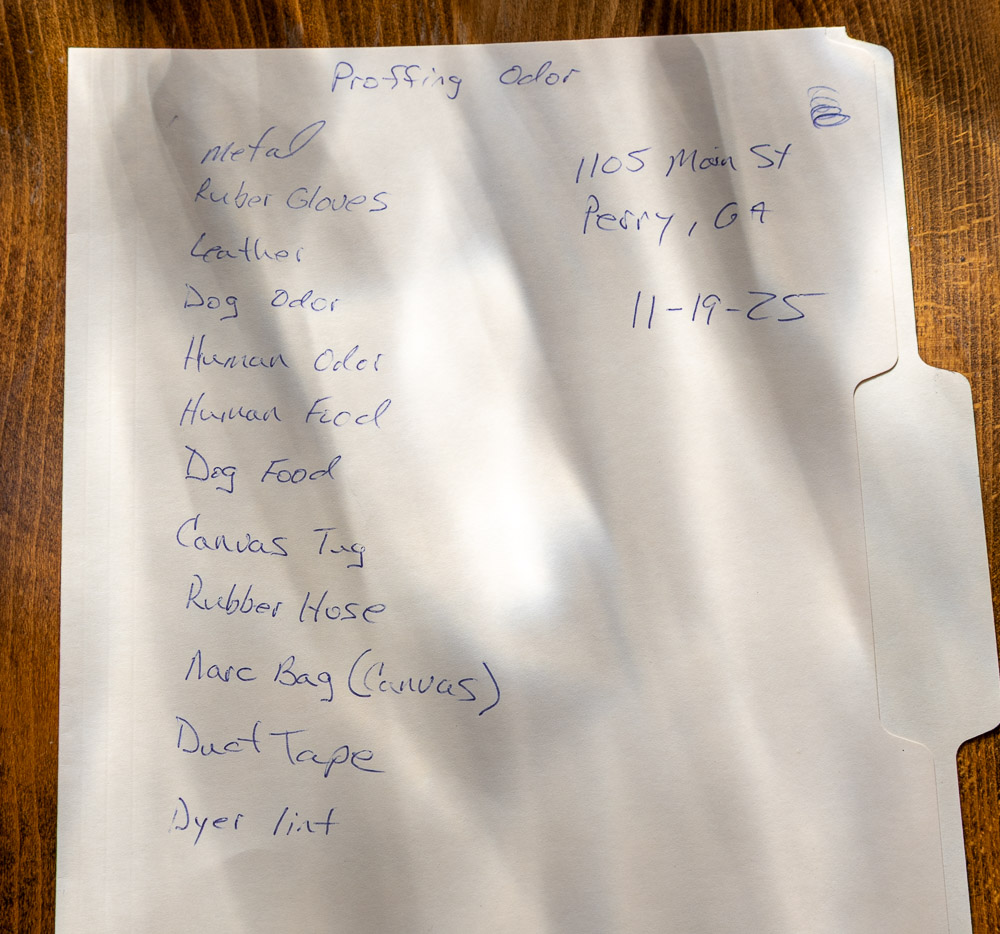 Proffing Odor
Metal
Ruber Gloves
Leather
Dog Odor
Human Odor
Human Food
Dog Food
Canvas Tug
Rubber Hose
Narc Bag (Canvas)
Duct Tape
Dyer lint
1105 Main St
Perry, GA
11-19-25